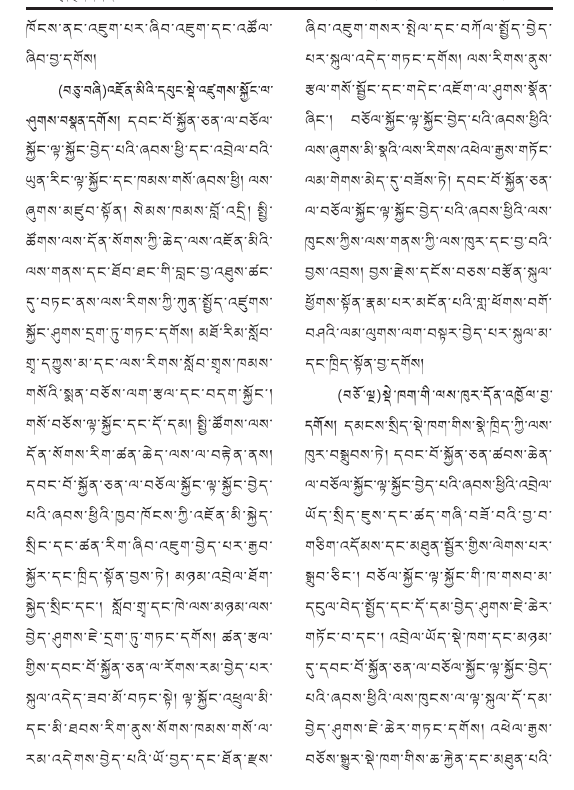 ཁོངས་ནང་འཇུག་པར་ཞིབ་འཇུག་དང་འཚོལ་
ཞིབ་བྱ་དགོས།
(བཅུ་བཞི)འཛོན་མིའི་དཔུང་སྡེ་འཛུགས་སྐྱོང་ལ་
ཤུགས་བསྣན་དགོས། དབང་པོ་སྐྱོན་ཅན་ལ་བཅོལ་
སྐྱོང་ལྟ་སྐྱོང་བྱེད་པའི་ཞབས་ཕྱི་དང་འབྲེལ་བའི་
ཡུན་རིང་ལྟ་སྐྱོང་དང་ཁམས་གསོ་ཞབས་ཕྱི། ལས་
ཞུགས་མཛུབ་སྟོན། སེམས་ཁམས་བློ་འདྲི། སྤྱི་
ཚོགས་ལས་དོན་སོགས་ཀྱི་ཆེད་ལས་འཛོན་མིའི་
ལས་གནས་དང་ཐོབ་ཐང་གི་བླང་བྱ་འཐུས་ཚང་
དུ་བཏང་ནས་ལས་རིགས་ཀྱི་ཀུན་སྤྱོད་འཛུགས་
སྐྱོང་ཤུགས་དྲག་ཏུ་གཏང་དགོས། མཐོ་རིམ་སློབ་
གྲྭ་དཀྱུས་མ་དང་ལས་རིགས་སློབ་གྲྭས་ཁམས་
གསོའི་སྨན་བཅོས་ལག་རྩལ་དང་བདག་སྐྱོང་།
གསོ་བཅོས་ལྟ་སྐྱོང་དང་དོ་དམ། སྤྱི་ཚོགས་ལས་
དོན་སོགས་རིག་ཚན་ཆེད་ལས་ལ་བརྟེན་ནས།
དབང་པོ་སྐྱོན་ཅན་ལ་བཅོལ་སྐྱོང་ལྟ་སྐྱོང་བྱེད་
པའི་ཞབས་ཕྱིའི་ཁྱབ་ཁོངས་ཀྱི་འཛོན་མི་སྐྱེད་
སྲིང་དང་ཚན་རིག་ཞིབ་འཇུག་བྱེད་པར་རྒྱབ་
སྐྱོར་དང་ཁྲིད་སྟོན་བྱས་ཏེ། མཉམ་འབྲེལ་ཐོག་
སྐྱེད་སྲིང་དང་། སློབ་གྲྭ་དང་ཁེ་ལས་མཉམ་ལས་
བྱེད་ཤུགས་ཇེ་དྲག་ཏུ་གཏང་དགོས། ཚན་རྩལ་
གྱིས་དབང་པོ་སྐྱོན་ཅན་ལ་རོགས་རམ་བྱེད་པར་
སྐུལ་འདེད་ཟབ་མོ་བཏང་སྟེ། ལྟ་སྐྱོང་འཕྲུལ་མི་
དང་མི་ཐབས་རིག་ནུས་སོགས་ཁམས་གསོ་ལ་
རམ་འདེགས་བྱེད་པའི་ཡོ་བྱད་དང་ཐོན་རྫས་
ཞིབ་འཇུག་གསར་སྤེལ་དང་བཀོལ་སྤྱོད་བྱེད་
པར་སྐུལ་འདེད་གཏང་དགོས། ལས་རིགས་ནུས་
རྩལ་གསོ་སྦྱོང་དང་གདེང་འཇོག་ལ་ཤུགས་སྣོན་
ཞིང་། བཅོལ་སྐྱོང་ལྟ་སྐྱོང་བྱེད་པའི་ཞབས་ཕྱིའི་
ལས་ཞུགས་མི་སྣའི་ལས་རིགས་འཕེལ་རྒྱས་གཏོང་
ལམ་གེགས་མེད་དུ་བཟོས་ཏེ། དབང་པོ་སྐྱོན་ཅན་
ལ་བཅོལ་སྐྱོང་ལྟ་སྐྱོང་བྱེད་པའི་ཞབས་ཕྱིའི་ལས་
ཁུངས་ཀྱིས་ལས་གནས་ཀྱི་ལས་ཁུར་དང་བྱ་བའི་
བྱས་འབྲས། བྱས་རྗེས་དངོས་བཅས་བརྩོན་སྐུལ་
ཕྱོགས་སྟོན་རྣམ་པར་མངོན་པའི་གླ་ཕོགས་བགོ་
བཤའི་ལམ་ལུགས་ལག་བསྟར་བྱེད་པར་སྐུལ་མ་
དང་ཁྲིད་སྟོན་བྱ་དགོས།
(བཅོ་ལྔ)སྡེ་ཁག་གི་ལས་ཁུར་དོན་འཁྱོལ་བྱ་
དགོས། དམངས་སྲིད་སྡེ་ཁག་གིས་སྣེ་ཁྲིད་ཀྱི་ལས་
ཁུར་བསྒྲུབས་ཏེ། དབང་པོ་སྐྱོན་ཅན་ཚབས་ཆེན་
ལ་བཅོལ་སྐྱོང་ལྟ་སྐྱོང་བྱེད་པའི་ཞབས་ཕྱིའི་འབྲེལ་
ཡོད་སྲིད་ཇུས་དང་ཚད་གཞི་བཟོ་བའི་བྱ་བ་
གཅིག་འདོམས་དང་མཐུན་སྦྱོར་གྱིས་ལེགས་པར་
སྒྲུབ་ཅིང་། བཅོལ་སྐྱོང་ལྟ་སྐྱོང་གི་ཁ་གསབ་མ་
དངུལ་བེད་སྤྱོད་དང་དོ་དམ་བྱེད་ཤུགས་ཇེ་ཆེར་
གཏོང་བ་དང་། འབྲེལ་ཡོད་སྡེ་ཁག་དང་མཉམ་
དུ་དབང་པོ་སྐྱོན་ཅན་ལ་བཅོལ་སྐྱོང་ལྟ་སྐྱོང་བྱེད་
པའི་ཞབས་ཕྱིའི་ལས་ཁུངས་ལ་ལྟ་སྐུལ་དོ་དམ་
བྱེད་ཤུགས་ཇེ་ཆེར་གཏང་དགོས། འཕེལ་རྒྱས་
བཅོས་སྒྱུར་སྡེ་ཁག་གིས་ཆ་རྐྱེན་དང་མཐུན་པའི་